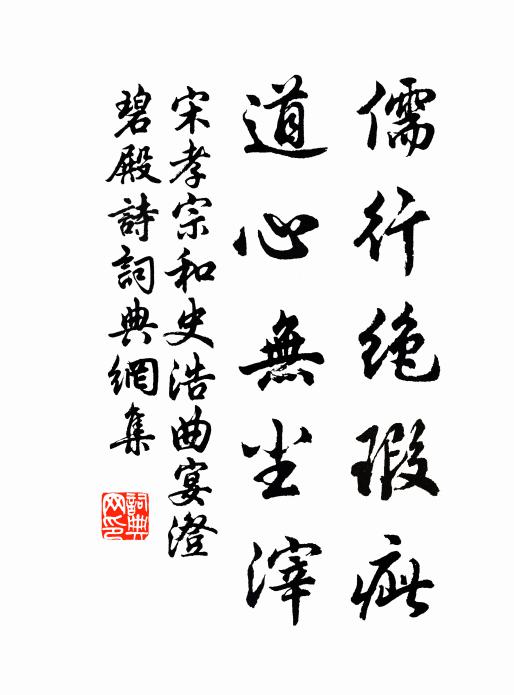 儒行绝瑕疵
道心無尘滓
宋孝宗和史浩曲宴澄
碧殿詩詞典網集
詞典
网印